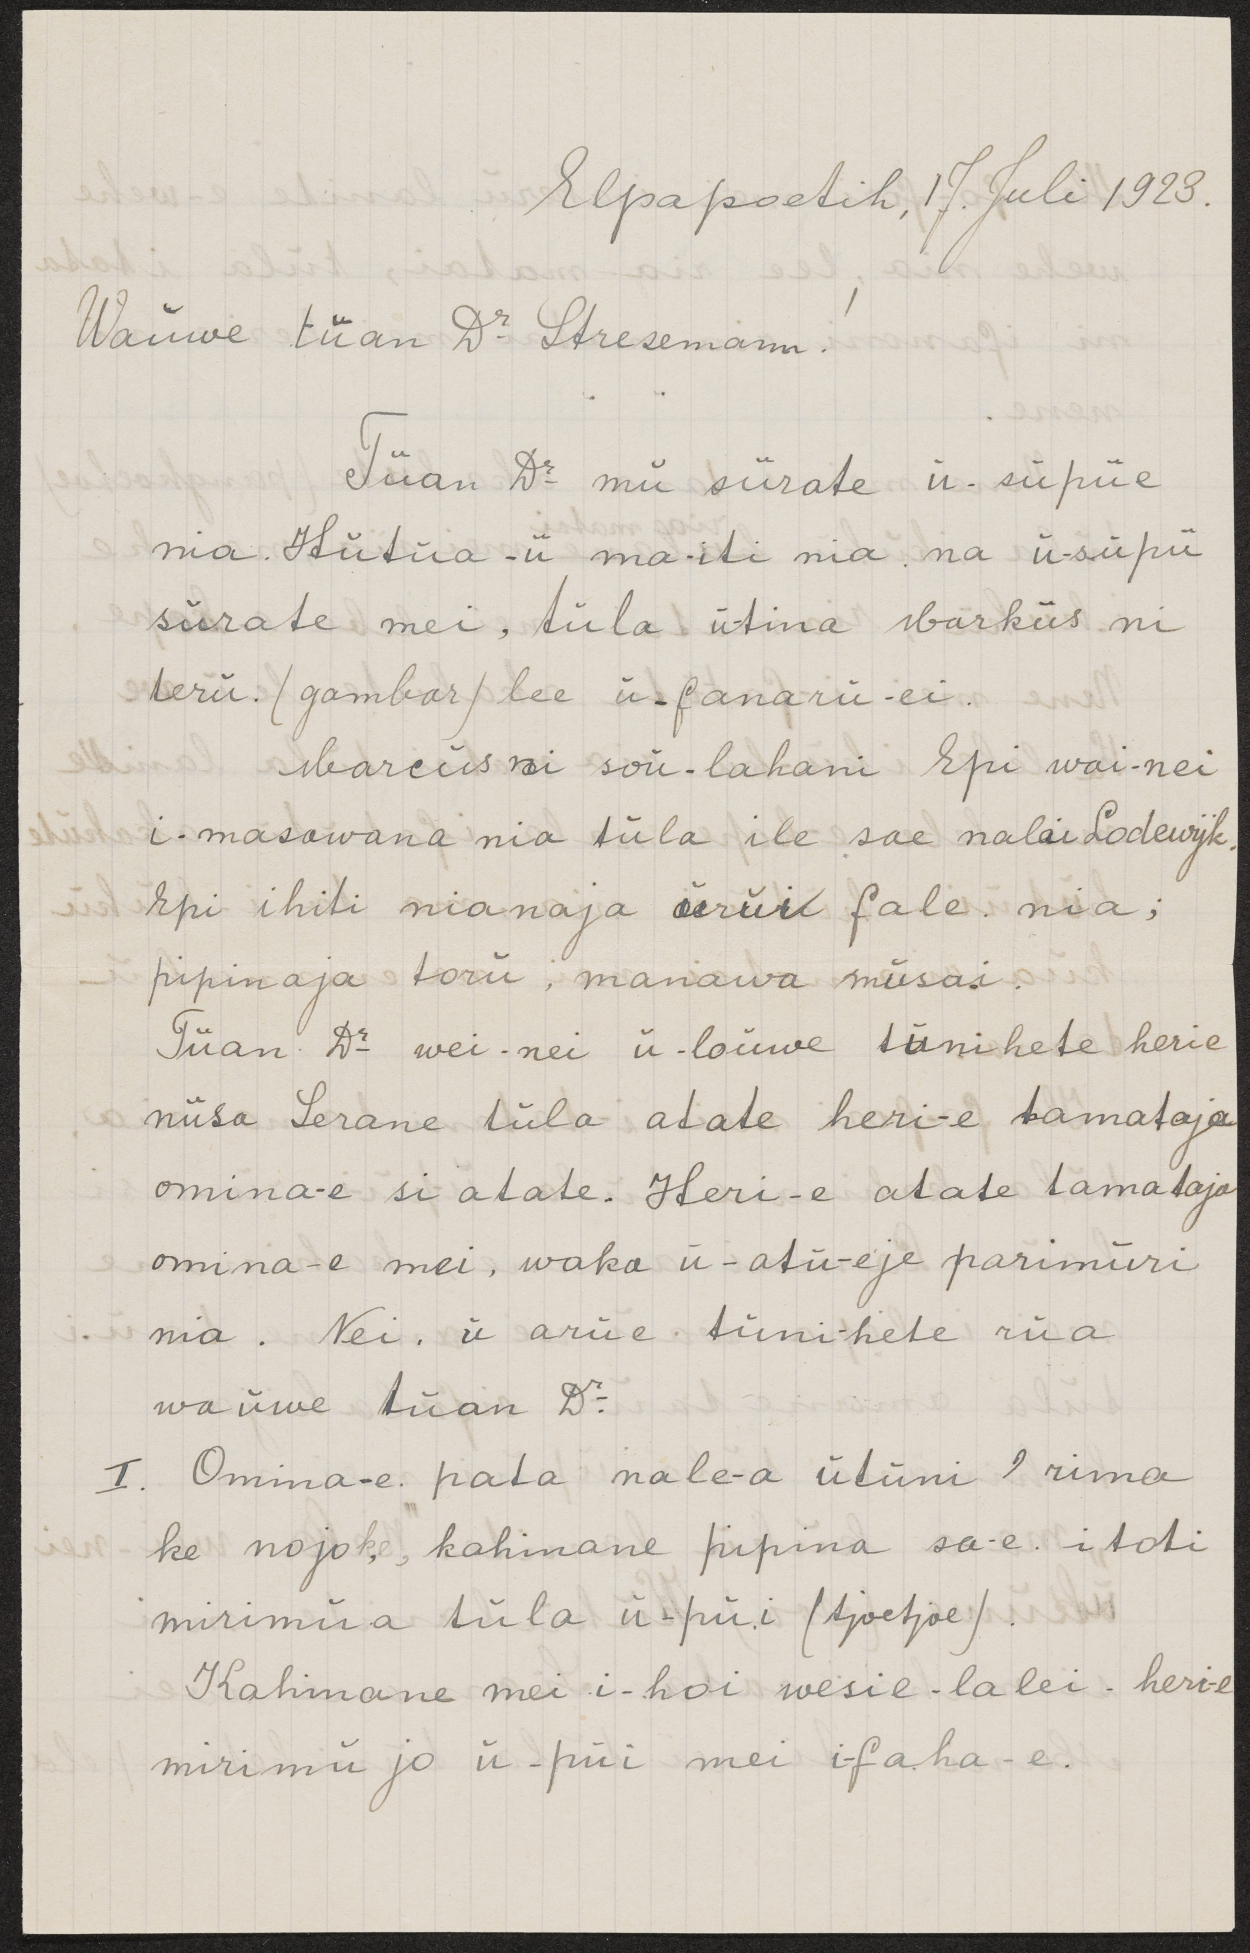 Elpapoetih, 17. Juli 1923.
Waüwe tüan Dr Stresemann!
Tüan Dr mü sürate ü-süpüe
nia. Hütüa-ü ma-iti nia. na ü-süpü
sürate mei, tüla ütina Marküs ni
terü. (gambar) lee ü-fanarü-ei.
Marcüs ni soü-lahani Epi wai-nei
i-masawana nia tüla ile sae nalai Lodewijk.
Epi ihiti nianaja ürüi fale. nia;
pipinaja torü, manawa müsai.
Tüan Dr wei-nei ü-loüwe tünihete herie
nüsa Serane tüla atate heri-e tamataja
omina-e si atate. Heri-e atate tamataja
omina-e mei, waka ü-atü-eje parimüri
nia. Nei. ü arüe tüni-hete rüa
waüwe tüan Dr
I. Omina-e. pata nale-a ütüni 1 rima
ke nojoke, kahinane pipina sa-e. i toti
mirimüa tüla ü-püi (tjoetjoe).
Kahinane mei i-hoi wesie-lalei. heri-e
mirimü jo ü-püi mei i-faha-e.